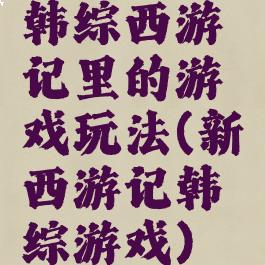 韩综西游
记里的游
戏玩法(新
西游记韩
综游戏)